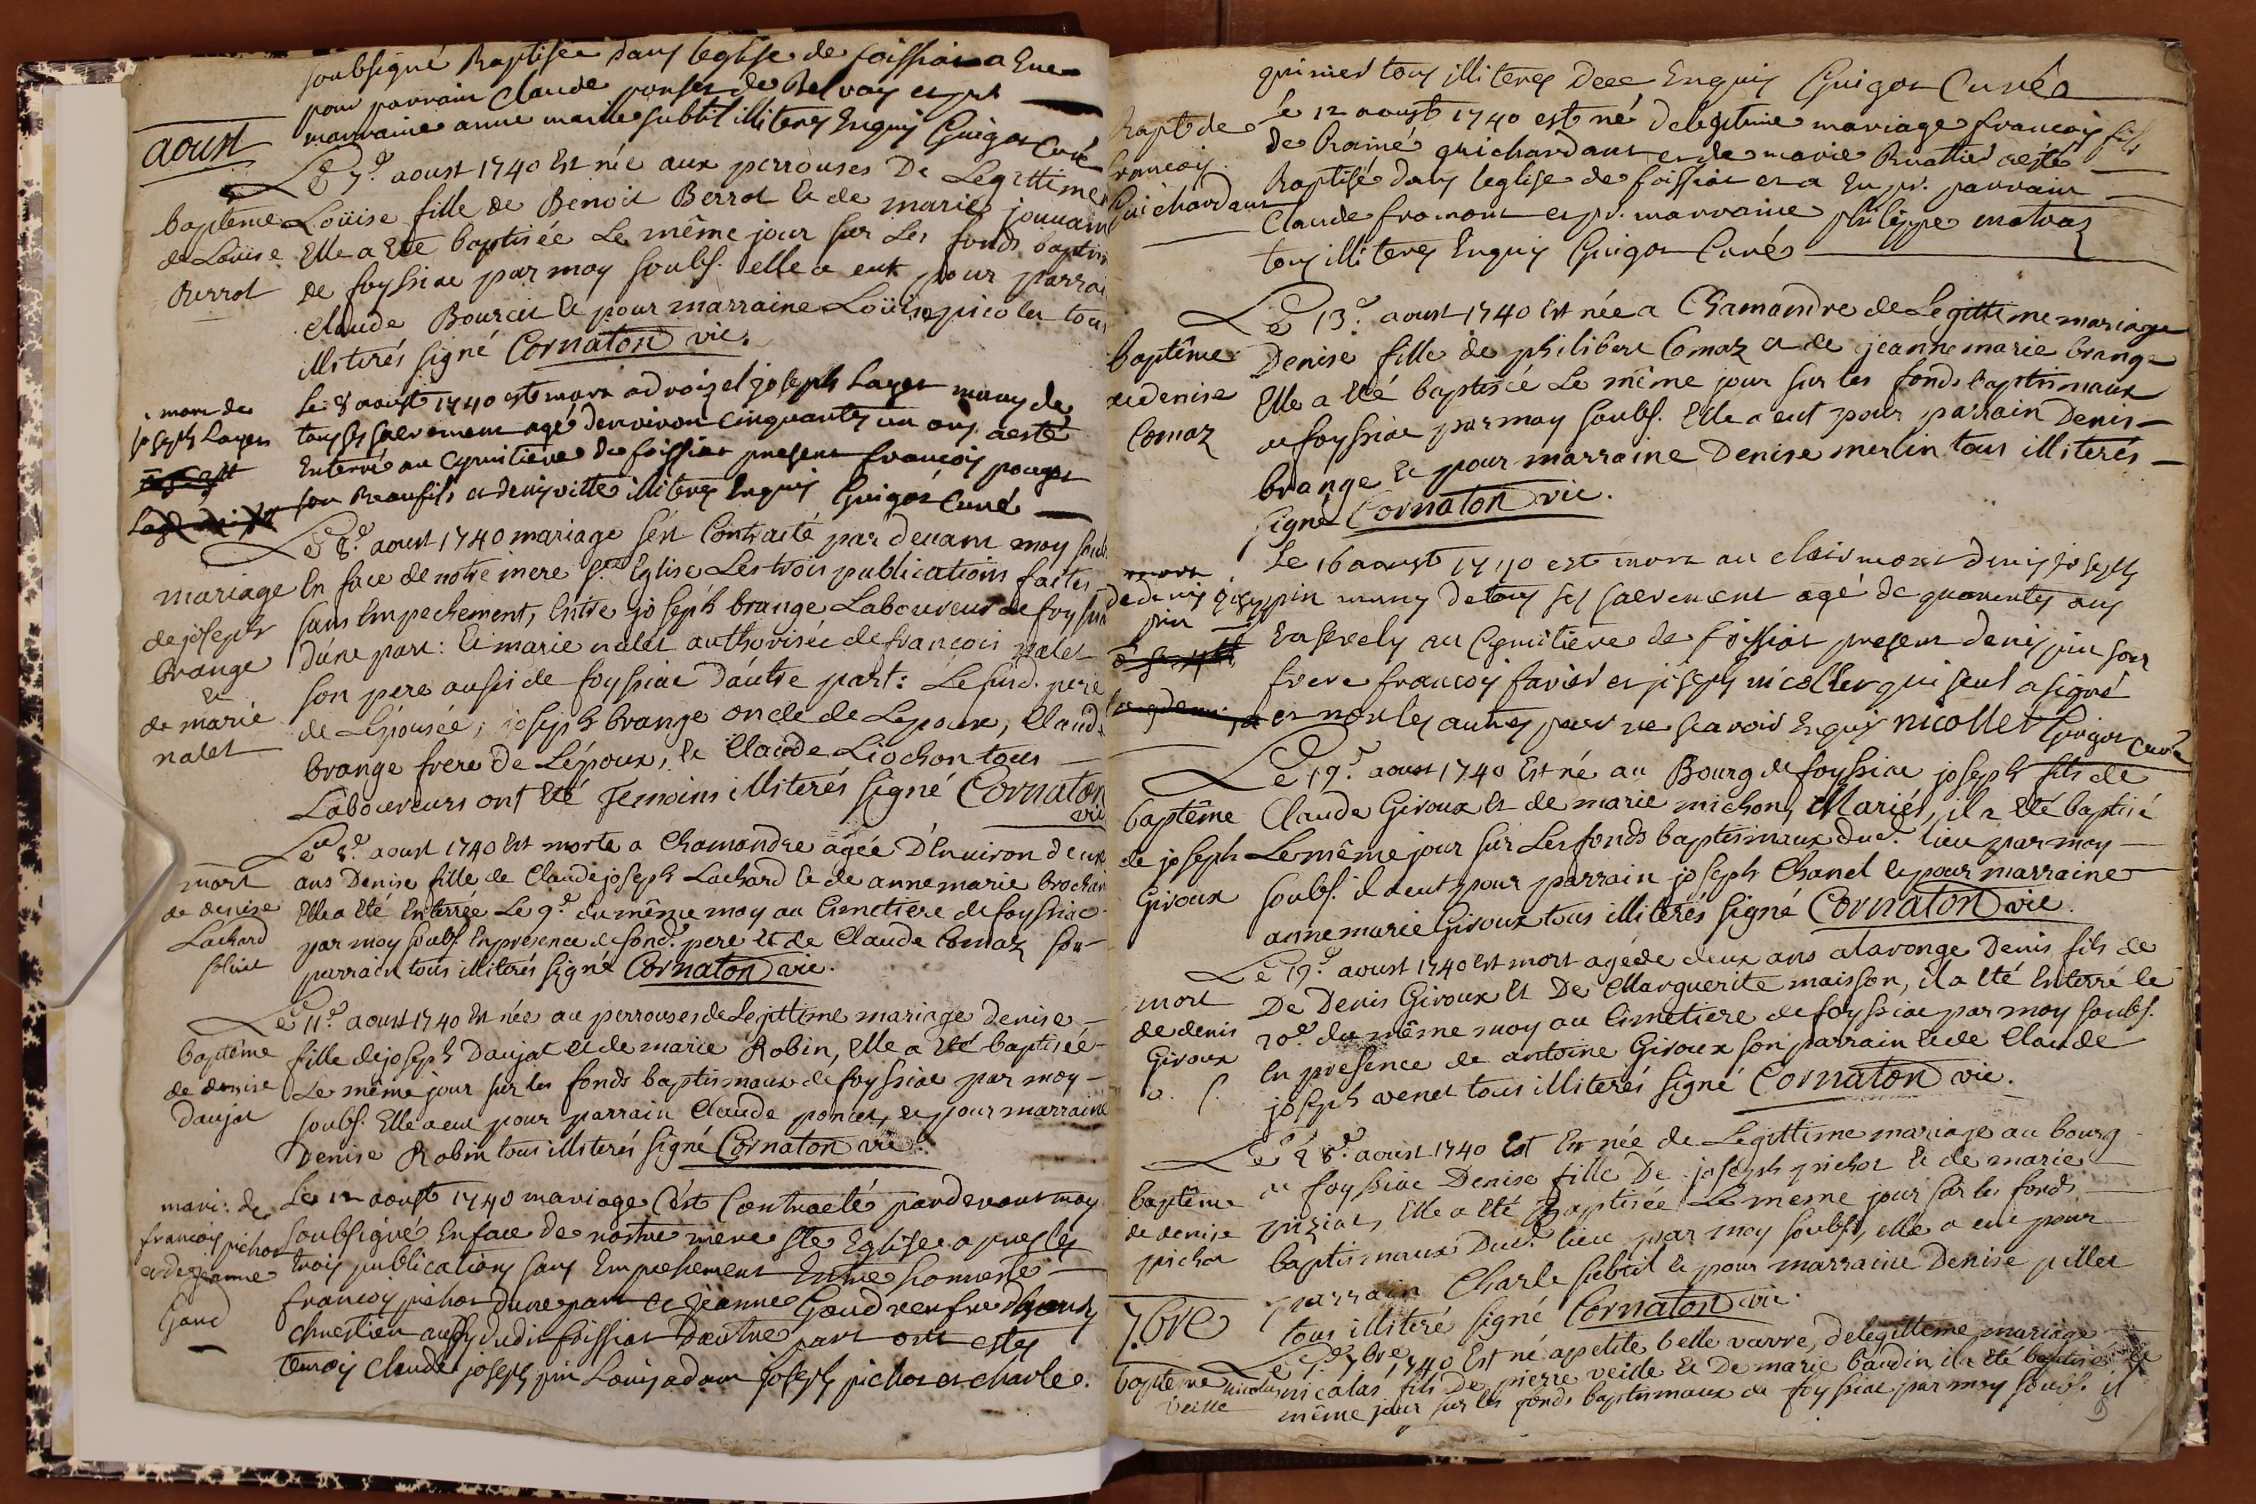 soubsigné Baptisée dans leglise de foissia a Eue
pour parrain Claude ponset de Belvay et pr
marraine anne marie subtil illiterez Enquis Guigot Curé
aoust
Le 7e aoust 1740 Est née aux perrouses De Legittime
baptême Loüise fille de Benoit Berrot & de marie jouvain
de Loüise Elle a Eté baptisée Le même jour sur Les fonds baptis
Berrot de foyssiac par moy soubs. elle a eut pour parrai
Claude Bourcet & pour marraine Loüise picolet tous
illiterés signé Cornaton vic.
mort de Le 8 aoust 1740 est mort joseph Layet muny de
joseph Layet tous ses sacrement agé denviron cinquante un ans aesté
Enterré au Cymitiere de foissiat present françois ponset
son Beaufils et denis vitte illiterez Enquis Guigot Curé
Le 8e aoust 1740 mariage s'est Contracté par devant moy soub
mariage En face de notre mere Ste Eglise Les trois publications faites
de joseph sans Empechement, Entre joseph brange Laboureur de foyssia
brange d'une part: & marie nalet authorisée de françois nalet
& son pere aussi de foyssiac d'autre part: Le susd. pere
de marie de L'épousée, joseph brange oncle de Lepoux, Claude
nalet brange frere de L'époux, & Claude Liochon tous
Laboureurs ont Eté temoins illiterés signé Cornaton
vic
Le 8e aoust 1740 Est morte a Chamandre agée D'Environ deux
mort ans Denise fille de Claude joseph Lachard & de anne marie brochan
de denise Elle a Eté Enterrée Le 9e du même moy au Cimetiere de foyssiac
Lachard par moy soubs. En présence de sond. pere Et de Claude Comaz son
parrain tous illiterés signé Cornaton vic.
Le 11e aoust 1740 Est née au perrouses de Legittime mariage Denise
baptême fille de joseph Daujat & de marie Robin, Elle a Eté baptisée
de denise Le même jour sur les fonds baptismaux de foyssiac par moy
Daujat soubs. Elle a eut pour parrain Claude poncet, & pour marraine
Denise Robin tous illiterés signé Cornaton vic.
mari: de Le 12 aoust 1740 mariage c'est Contracté pardevant moy
françois pichot soubsigné En face de nostre mere Ste Eglise apres les
et de jeanne trois publications sans Empechement Entre honneste
Gaud françois pichot d'une part et jeanne Gaud
aussy dudit foissiat d'autre part ont estés
temoins Claude joseph pin Louis adam joseph pichot et charle
tous illiterez Enquis Guigot Curé
Bapt de Le 12 aoust 1740 est né delegitime mariage françois fils
françois de guichardant et de marie aesté
Guichardant Baptisé dans leglise de foissiat et a Eu pr. parrain
Claude fromont et pr. marraine philippe
tous illiterez Enquis Guigot Curé
Le 13e aoust 1740 Est née a Chamandre de Legittime mariage
baptême Denise fille de philibert Comaz et de jeanne marie brange
de denise Elle a Eté baptisée Le même jour sur les fonds baptismaux
Comaz de foyssiac par moy soubs. Elle a eut pour parrain Denis
brange & pour marraine Denise merlin tous illiterés
signé Cornaton vic.
mort Le 16 aoust 1740 est mort au clairmont denis joseph
de denis joseph pin muny de tous ses sacrement agé de quarente ans
pin Ensevely au Cymitiere de foissiat present denis pin son
frere françois favier et joseph nicollet qui seul a signé
et non les autres pour ne scavoir Enquis nicollet Guigot Curé
Le 19e aoust 1740 Est né au Bourg de foyssiac joseph fils de
baptême Claude Giroux Et de marie michon, Mariés, il a Eté baptisé
de joseph Le même jour sur Les fonds baptismaux dud. lieu par moy
Giroux soubs. il a eut pour parrain joseph Chanel & pour marraine
anne marie Giroux tous illiterés signé Cornaton vic.
Le 19e aoust 1740 Est mort agé de deux ans alavonge Denis fils de
mort De Denis Giroux Et De Marguerite maisson, il a Eté Enterré le
de denis 20e du même moy au Cimetiere de foyssiac par moy soubs.
Giroux En presence de antoine Giroux son parrain & de Claude
joseph venet tous illiterés signé Cornaton vic.
Le 28e aoust 1740 Est Est née de Legittime mariage au bourg
baptême de foyssiac Denise fille De joseph pichot & de marie
de denise piziat, Elle a Eté Baptisée Le meme jour sur les fonds
pichot baptismaux Dud. lieu par moy soubs, elle a eut pour
parrain Charle subtil & pour marraine Denise pillet
tous illiteré signé Cornaton vic.
7bre
Le 7bre 1740 Est né apetite belle vavre, de legitteme mariage
bapteme nicolas nicolas fils De pierre veille & De marie baudin il a Eté baptisé le
veille même jour sur les fonds baptismaux de foyssiac par moy soubs. il